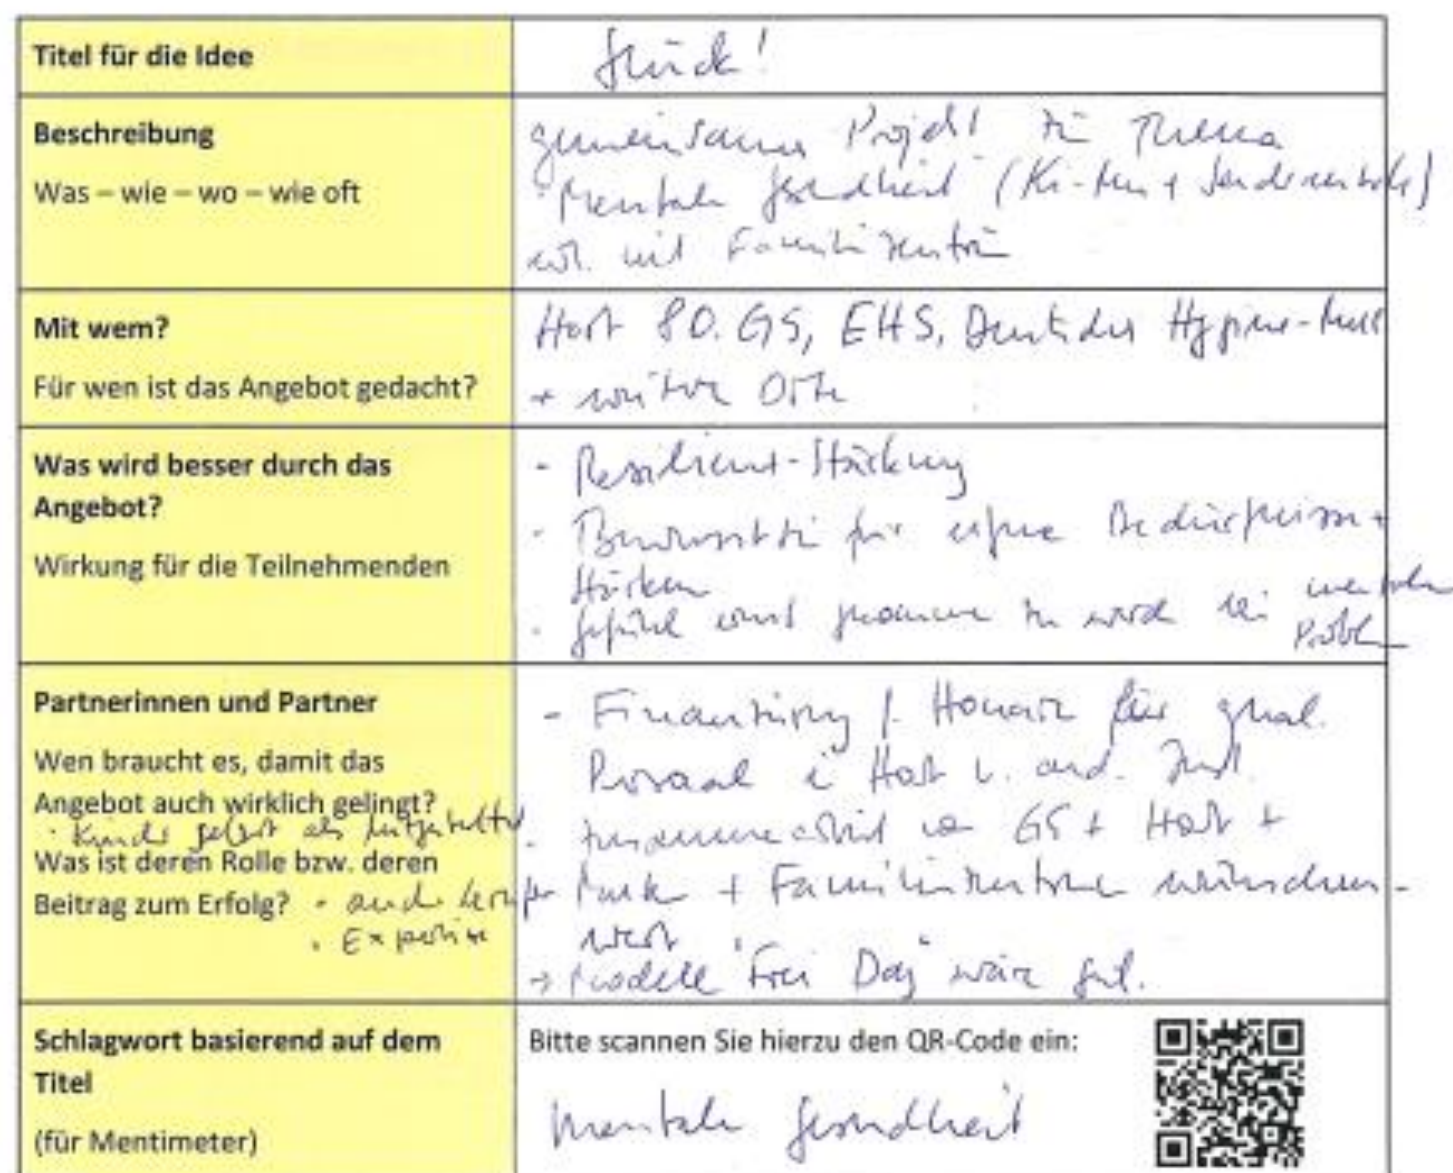 Titel für die Idee
Glück!
Beschreibung
Was – wie – wo – wie oft
gemeinsames Projekt zu Thema
Mentale Gesundheit (Ki-
evt. mit Familienzentrum
Mit wem?
Für wen ist das Angebot gedacht?
Hort 80. GS, EHS, Deutsches Hygiene-Mus
+ weitere Orte
Was wird besser durch das
Angebot?
Wirkung für die Teilnehmenden
- Resilienz-Stärkung
- Bewusstsein für eigene Bedürfnisse +
Stärken
- Gefühl ernst genommen zu werden bei mentalen
Problemen
Partnerinnen und Partner
Wen braucht es, damit das
Angebot auch wirklich gelingt?
· Kinder selbst als Mitgestalter
Was ist deren Rolle bzw. deren
Beitrag zum Erfolg? · and.
· Expertise
- Finanzierung f. Honorar für qual.
Personal i Hort u. and. Inst.
- Zusammenarbeit von GS + Hort +
+ Familienzentrum wünschens-
wert
→ Modell "Frei Day" wäre gut.
Schlagwort basierend auf dem
Titel
(für Mentimeter)
Bitte scannen Sie hierzu den QR-Code ein:
Mentale Gesundheit